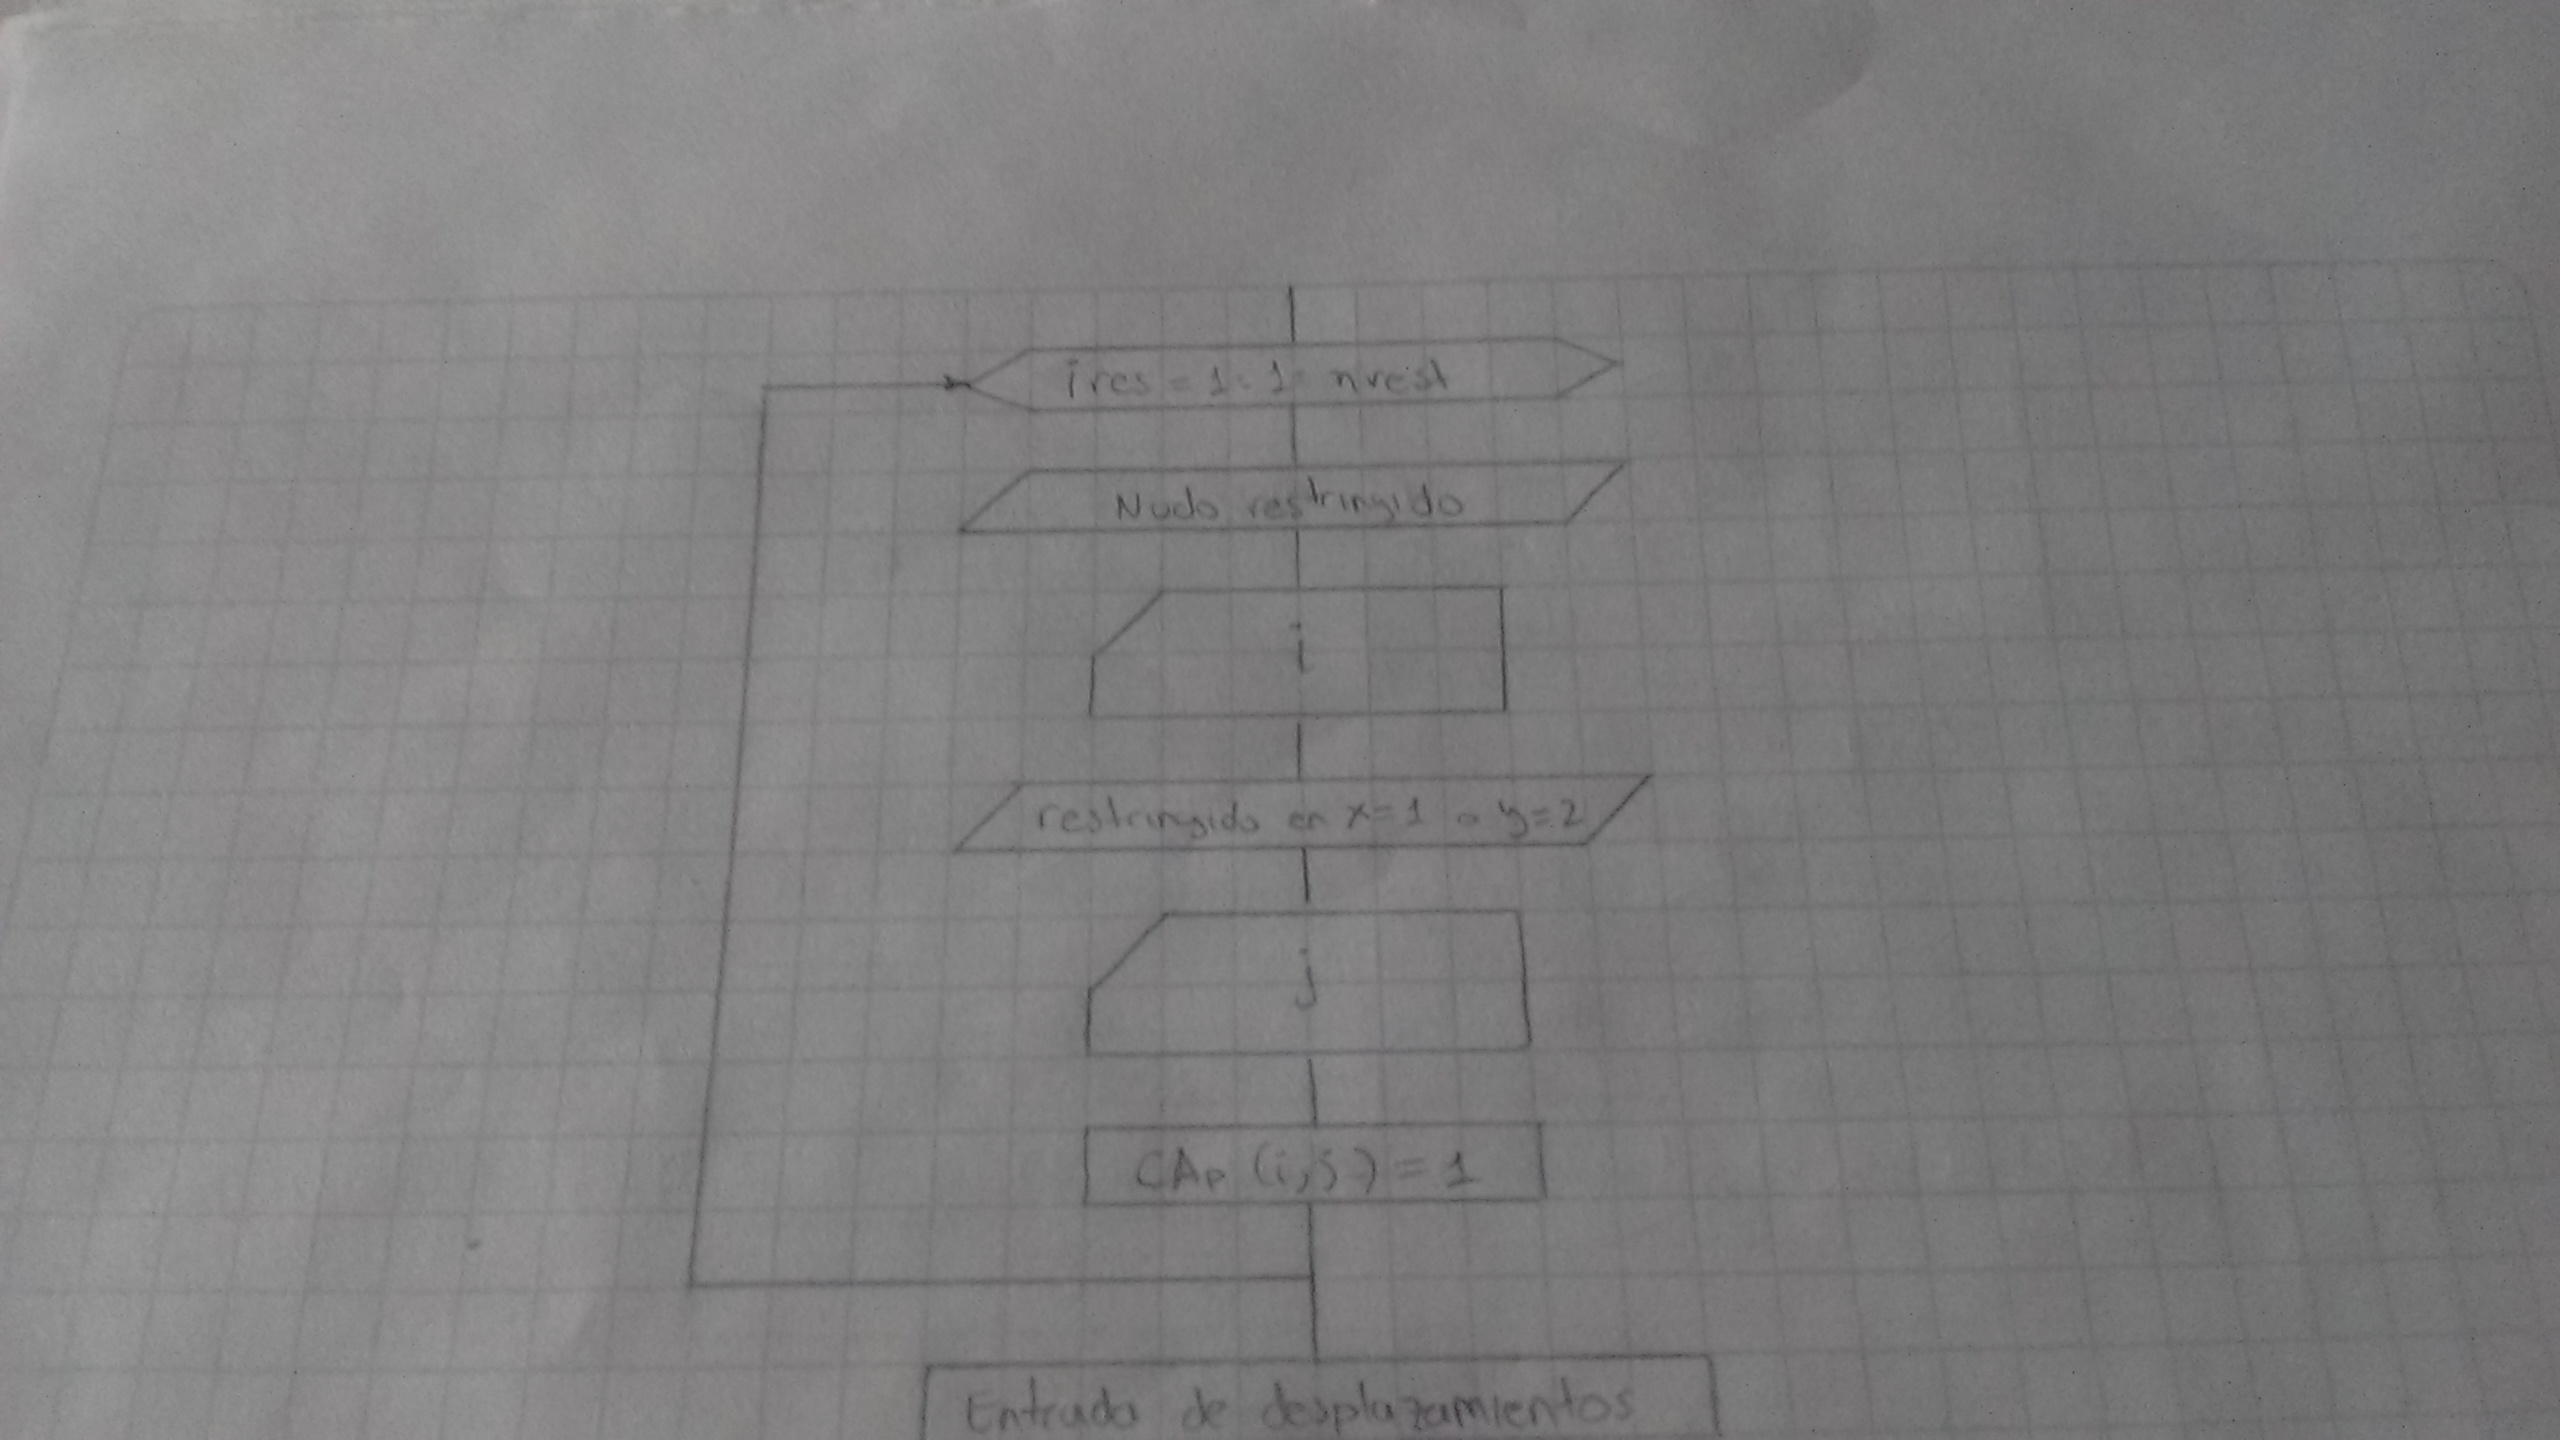 ires = 1:1:nrest
Nudo restringido
i
restringido en x=1 o y=2
j
CAp (i,j) = 1
Entrada de desplazamientos